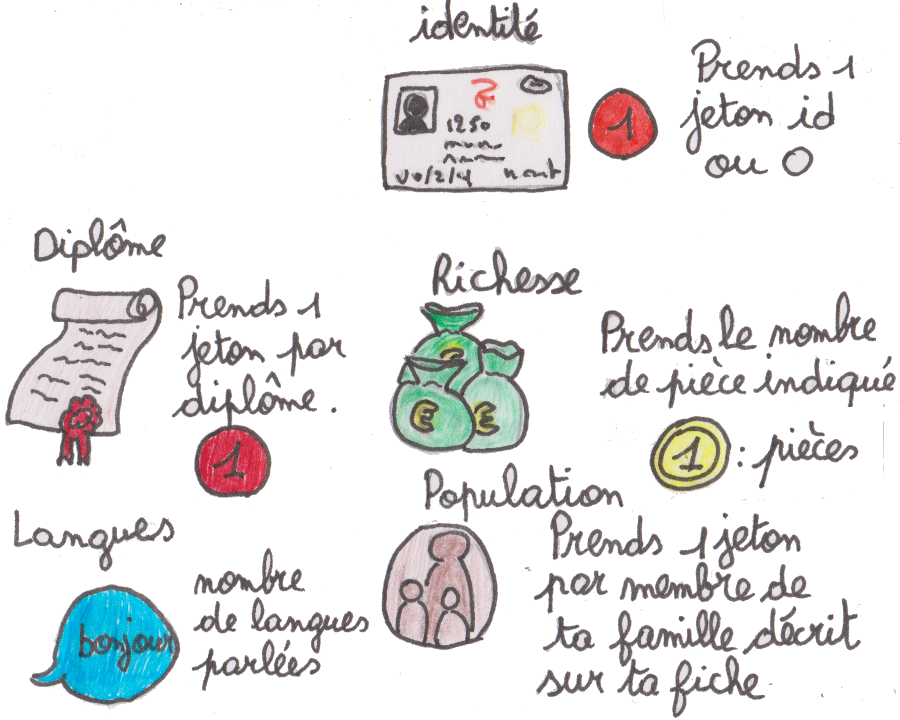 identité
1250
Prends 1
jeton id
ou 0
1
Diplôme
Prends 1
jeton par
diplôme.
1
Richesse
€
€
Prends le nombre
de pièce indiqué
1 : pièces
Langues
bonjour
nombre
de langues
parlées
Population
Prends 1 jeton
par membre de
ta famille décrit
sur ta fiche